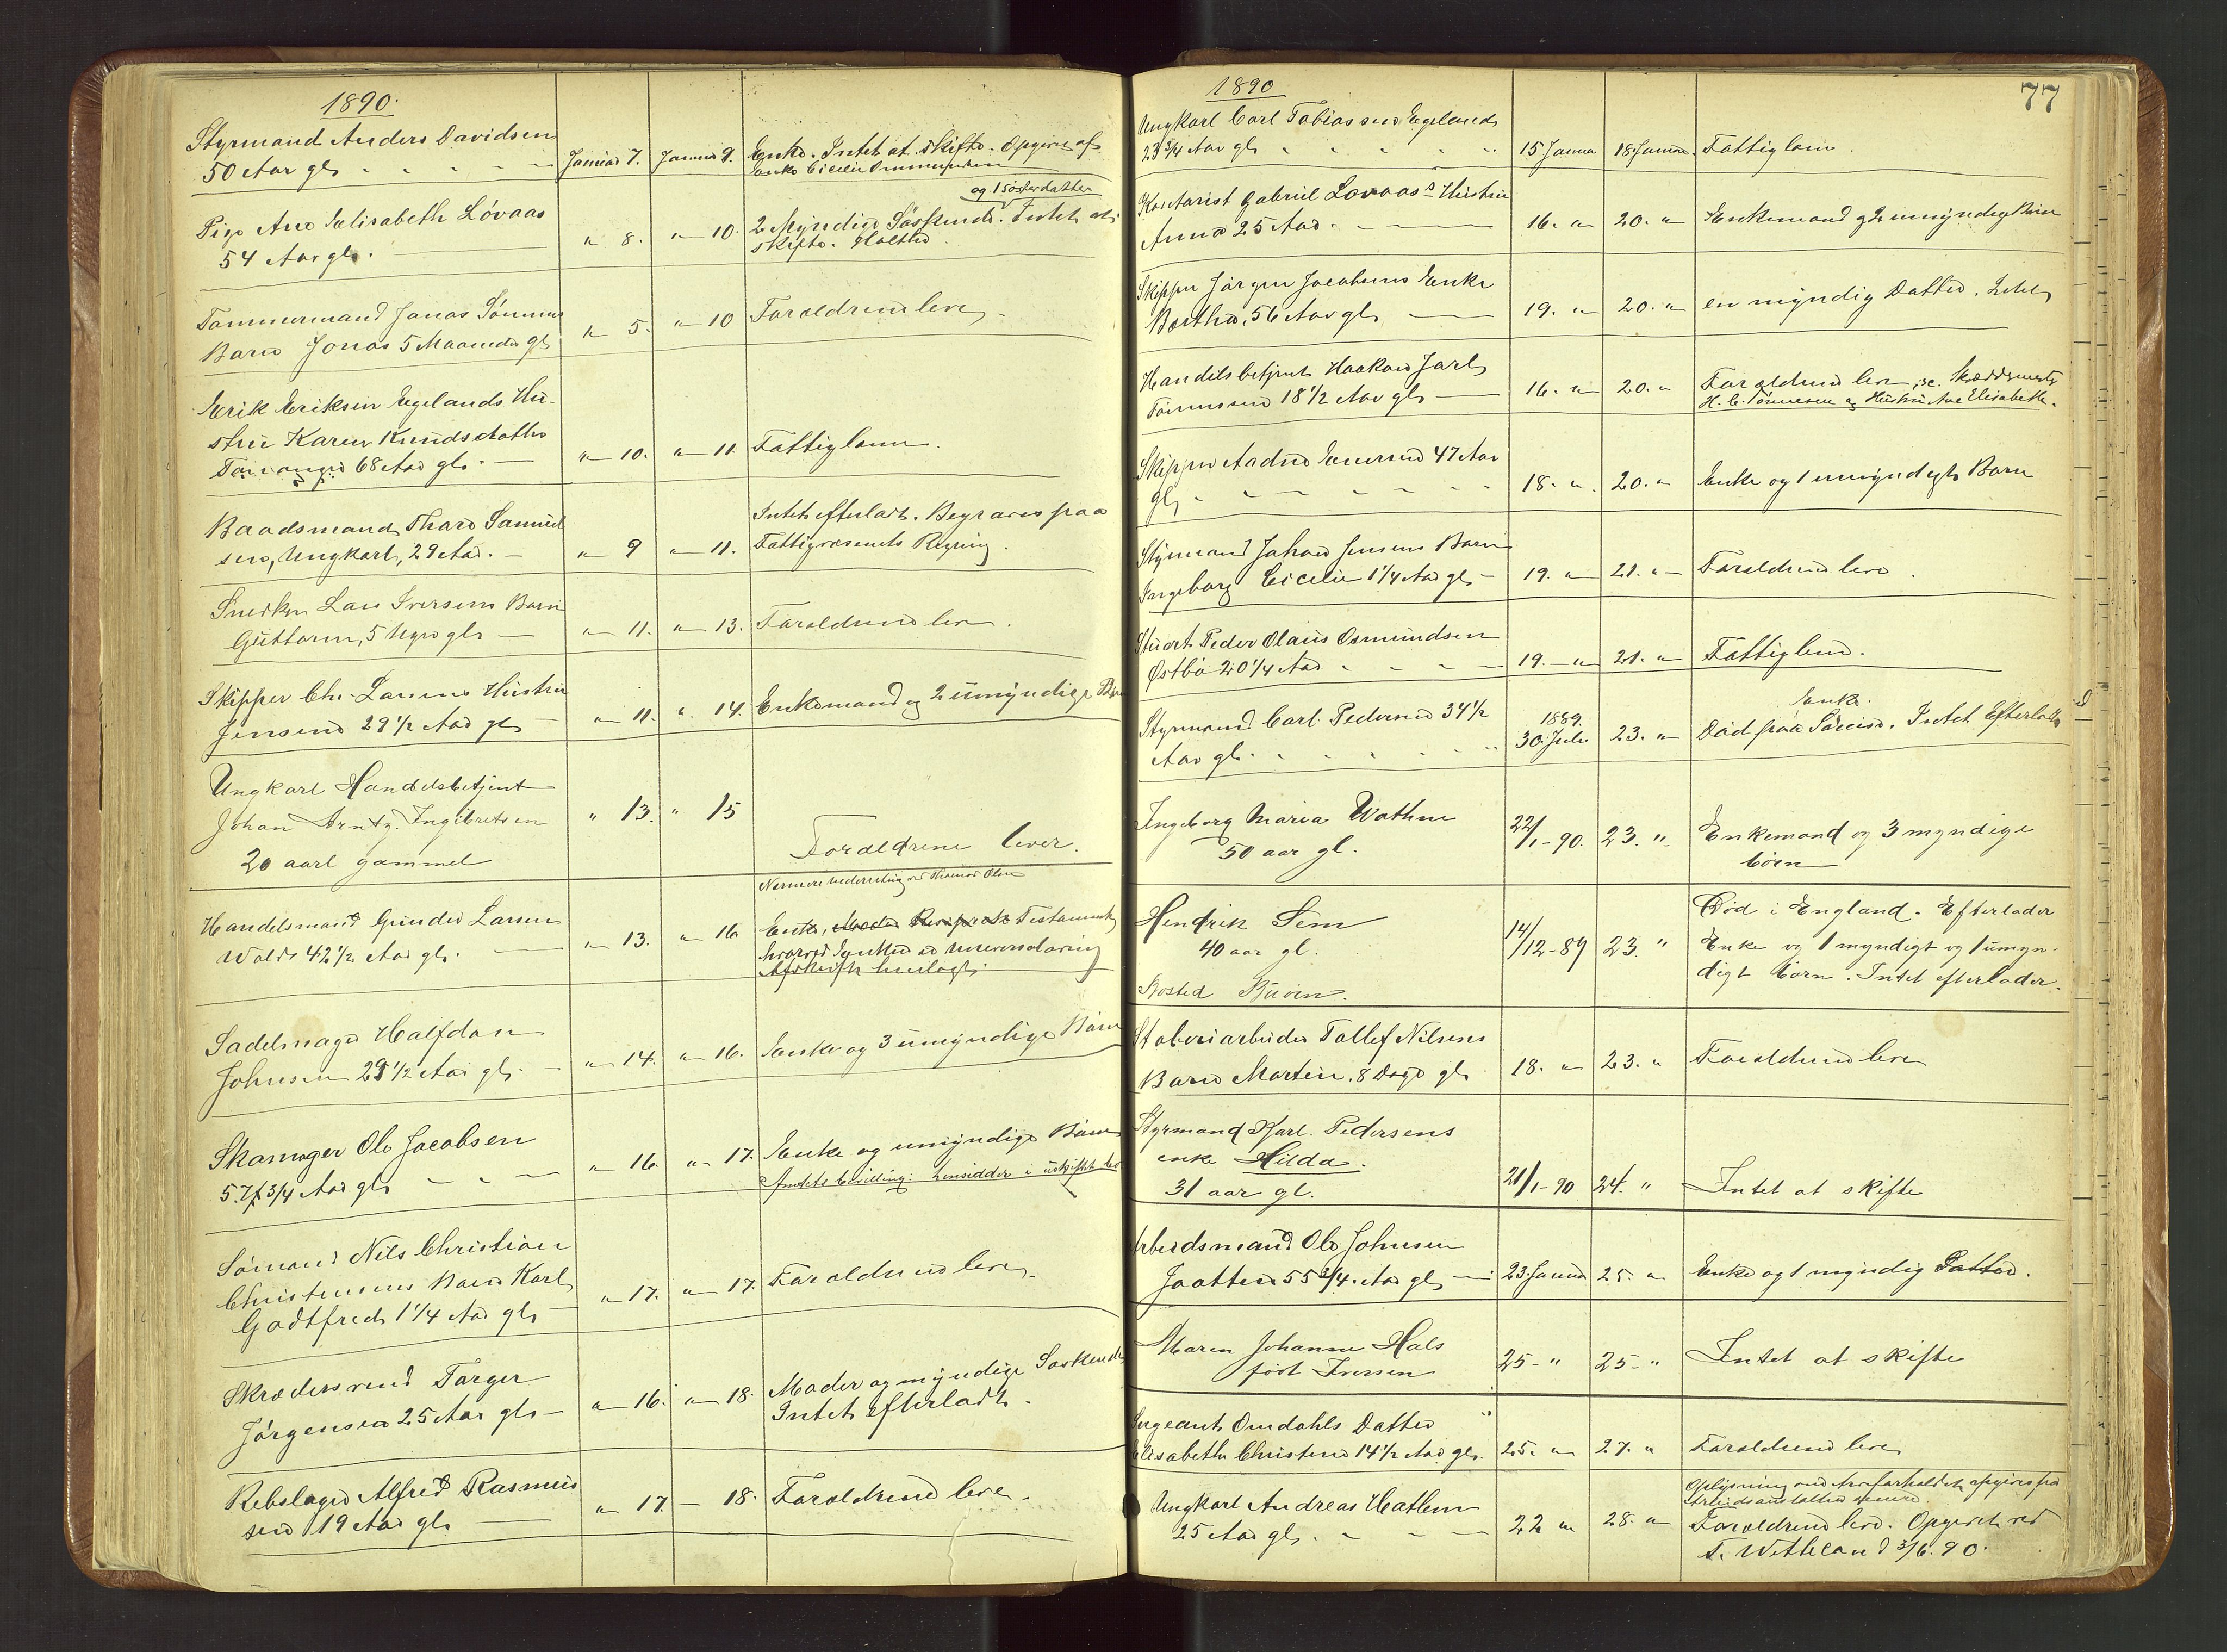 1890.
Styrmand Anders Davidsen
50 Aar gl. Januar 7. Januar 9. Enke. Intet at skifte. Opgives af
Enke Cicelie
og 1 Søsterdatter
Pige Ane Elisabeth Lövaas
54 Aar gl. " 8. " 10. 2 Myndige Søskende. Intet at
skifte.
Tømmermand Jonas
Barn Jonas 5 Maaneder gl " 5. " 10 Forældrene lever.
Erik Eriksen Egelands Hu-
stru Karen Knudsdatter
68 Aar gl. " 10. " 11. Fattiglem.
Baadsmand Thard Samuel
sen, Ungkarl, 29 Aar. " 9 " 11. Intet efterladt. Begraves paa
Fattigvæsenets Regning.
Snedker Lars Iversens Barn
Guttorm, 5 Uger gl. " 11. " 13. Forældrene lever.
Skipper Chr. Larsens Hustru
Jensine 29 1/2 Aar gl " 11. " 14. Enkemand og 2 umyndige Børn
Ungkarl Handelsbetjent
Johan Arntz. Ingebretsen " 13. " 15
20 aarl gammel Forældrene lever.
Nærmere underretning ved Thomas Olsen
Handelsmand Gunder Larsen
Wold 42 1/2 Aar gl. " 13. " 16 Enke, Testament,
hvorved Enken er Universalarving
Afskrift henlagt.
Sadelmager Halfdan
Johnsen 29 1/2 Aar gl. " 14. " 16. Enke og 3 umyndige Børn
Skomager Ole Jacobsen
57 3/4 Aar gl " 16. " 17. Enke og umyndige Børn
Amtets bevilling: hensidder i uskiftet bo
Sømand Nils Christian
Christensens Barn Karl
Godtfred 1 1/4 Aar gl. " 17. " 17. Forældrene lever.
Skrædersvend Torger
Jørgensen 25 Aar gl. " 16. " 18. Moder og myndige Søskende
Intet efterladt.
Rebslager Alfred Rasmus
sen 19 Aar gl. " 17. — 18. Forældrene lever.
1890
77
Ungkarl Carl Tobiassen Egelands
23 3/4 Aar gl. 15 Januar 18 Januar. Fattiglem.
Gabriel Lovaas's Hustru
Anna 25 Aar. 16. " 20. " Enkemand og 2 umyndige Børn
Skipper Jørgen Jacobsens Enke
Berthe, 56 Aar gl. 19. " 20. " en myndig Datter.
Handelsbetjent Haakon Jarl
Tønnessen 18 1/2 Aar gl. 16. " 20. " Forældrene lever, :
H. C. Tønnesen og Hustru Ane Elisabeth.
Skipper Aadne Enersen 47 Aar
gl. 18. " 20. " Enke og 1 umyndigt Barn
Styrmand Johan Jensens Barn
Ingeborg Cicelie 1 1/4 Aar gl. 19. " 21. " Forældrene leve.
Stuert Peder Olaus Osmundsen
Østbø 20 1/4 Aar 19. " 21. " Fattiglem.
Styrmand Carl Pedersen 34 1/2
Aar gl. 1889. 30. Juli 23. " Enke.
Død paa Søreise. Intet Efterladt
Ingeborg Maria Wathne
50 aar gl. 22/1-90. 23. " Enkemand og 3 myndige
børn
Hendrik Sem
40 aar gl. 14/12-89 23. " Død i England. Efterlader
Enke og 1 myndigt og 1 umyn-
digt børn. Intet efterlader.
Bosted Buøen.
Støberiarbeider Tollef Nilsens
Barn Martin, 8 Dage gl. 18. " 23. " Forældrene leve
Styrmand Karl Pedersens
enke Hilda.
31 aar gl. 21/1-90 24. " Intet at skifte
Arbeidsmand Ole Johnsen
Jaatten 55 3/4 Aar gl. 23. Januar 25. " Enke og 1 myndig Datter.
Maren Johanne Hals
født Iversen 25- " 25- " Intet at skifte
Sergeant Omdahls Datter
Elisabeth Christine 14 1/2 Aar gl. 25. " 27. " Forældrene leve
Ungkarl Andreas Hatlem
25 Aar gl. 22 " 28. " Oplysning om Arveforholdet opgives paa
Arbeidsanstalten senere.
Forældrene leve. Opgivet ved
T. Wetteland 3/6.90.